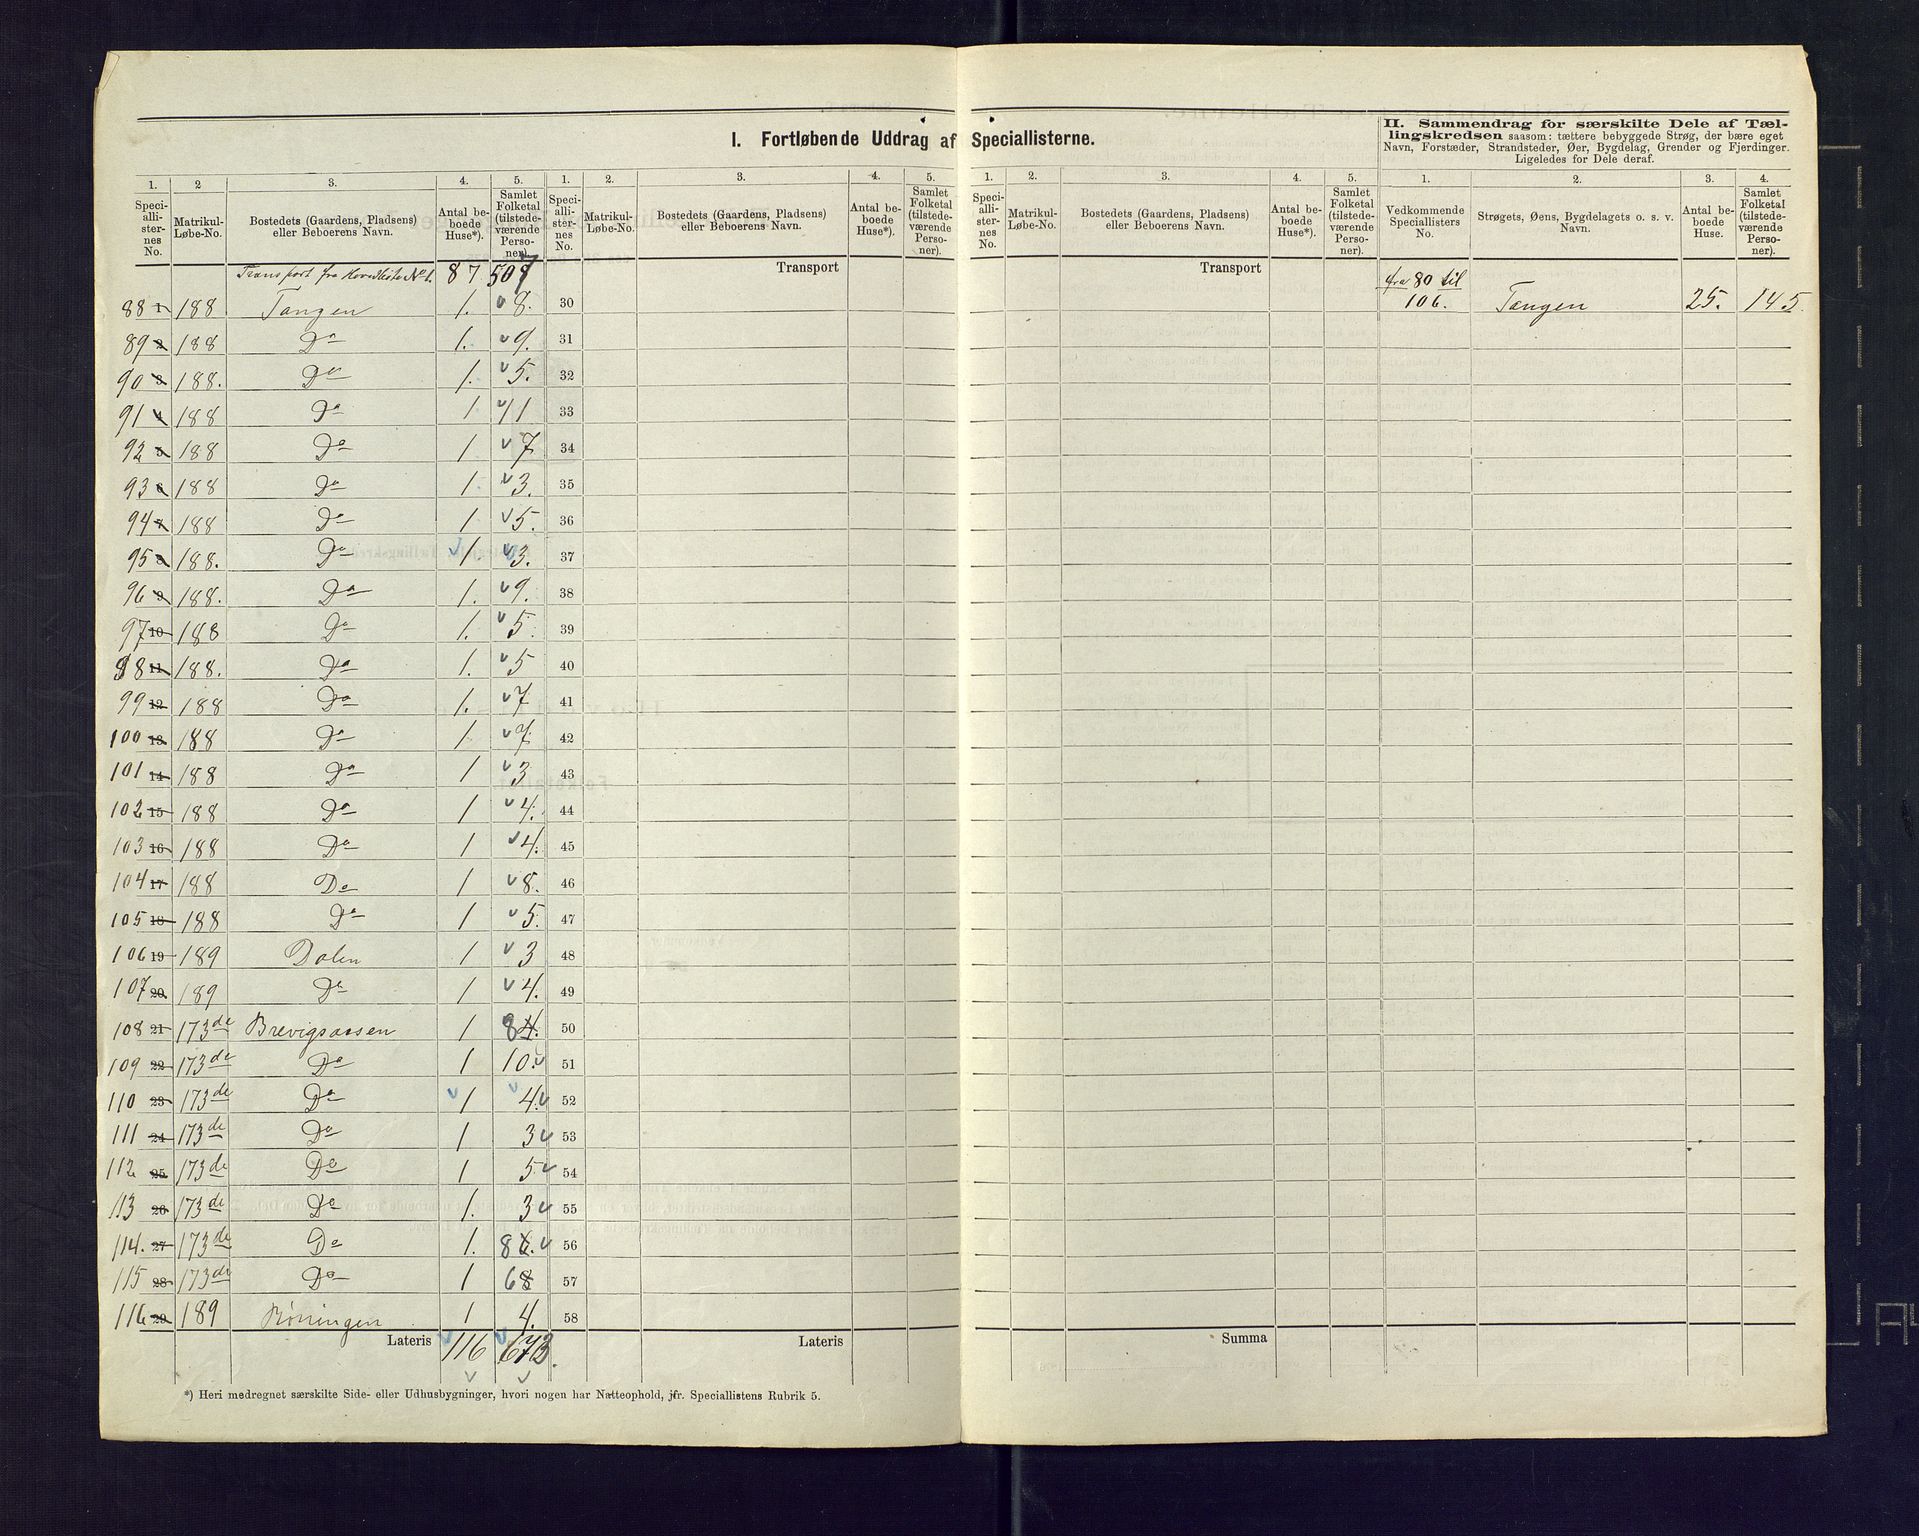 I. Fortløbende Uddrag af Speciallisterne.
II. Sammendrag for særskilte Dele af Tællingskredsen saasom: tættere bebyggede Strøg, der bære eget
Navn, Forstæder, Strandsteder, Øer, Bygdelag, Grender og Fjerdinger.
Ligeledes for Dele deraf.
1. 2 3. 4. 5. 1. 2. 3. 4. 5. 1. 2. 3. 4. 5. 1. 2. 3. 4.
Speciallisternes No. Matrikul-Løbe-No. Bostedets (Gaardens, Pladsens) eller Beboerens Navn. Antal beboede Huse*). Samlet Folketal (tilstedeværende Personer).
Speciallisternes No. Matrikul-Løbe-No. Bostedets (Gaardens, Pladsens) eller Beboerens Navn. Antal beboede Huse*). Samlet Folketal (tilstedeværende Personer).
Speciallisternes No. Matrikul-Løbe-No. Bostedets (Gaardens, Pladsens) eller Beboerens Navn. Antal beboede Huse*). Samlet Folketal (tilstedeværende Personer).
Vedkommende Speciallisters No. Strøgets, Øens, Bygdelagets o. s. v. Navn. Antal beboede Huse. Samlet Folketal (tilstedeværende Personer).
Transport fra Hovedliste No 1. 87 507 Transport Transport fra 80 til
88 1 188 Tangen 1. 8. 30 106. Tangen 25. 145.
89 2 188 Do 1. 9. 31
90 3 188. Do 1. 5. 32
91 4 188 Do 1 11 33
92 5 188 Do 1 7 34
93 6 188 Do 1 3. 35
94 7 188 Do 1 5. 36
95 8 188. Do 1. 3. 37
96 9 188. Do 1. 9. 38
97 10 188 Do 1. 5. 39
98 11 188. Do 1. 5 40
99 12 188 Do 1. 7 41
100 13 188 Do 1 7. 42
101 14 188 Do 1 3 43
102 15 188 Do 1 4. 44
103 16 188 Do 1 4. 45
104 17 188 Do 1 8. 46
105 18 188 Do 1 5. 47
106 19 189 Dalen 1 3 48
107 20 189 Do 1 4. 49
108 21 173de Brevigsaasen 1 8 4. 50
109 22 173de Do 1 10. 51
110 23 173de Do 1 4. 52
111 24 173de Do 1 3 53
112 25 173de Do 1 5 54
113 26 173de Do 1. 3 55
114. 27 173de Do 1. 8 6. 56
115 28 173de Do 1 6 8 57
116 29 189 Rønningen 1 4. 58
Lateris 116 673. Lateris Summa
*) Heri medregnet særskilte Side- eller Udhusbygninger, hvori nogen har Natteophold, jfr. Speciallistens Rubrik 5.